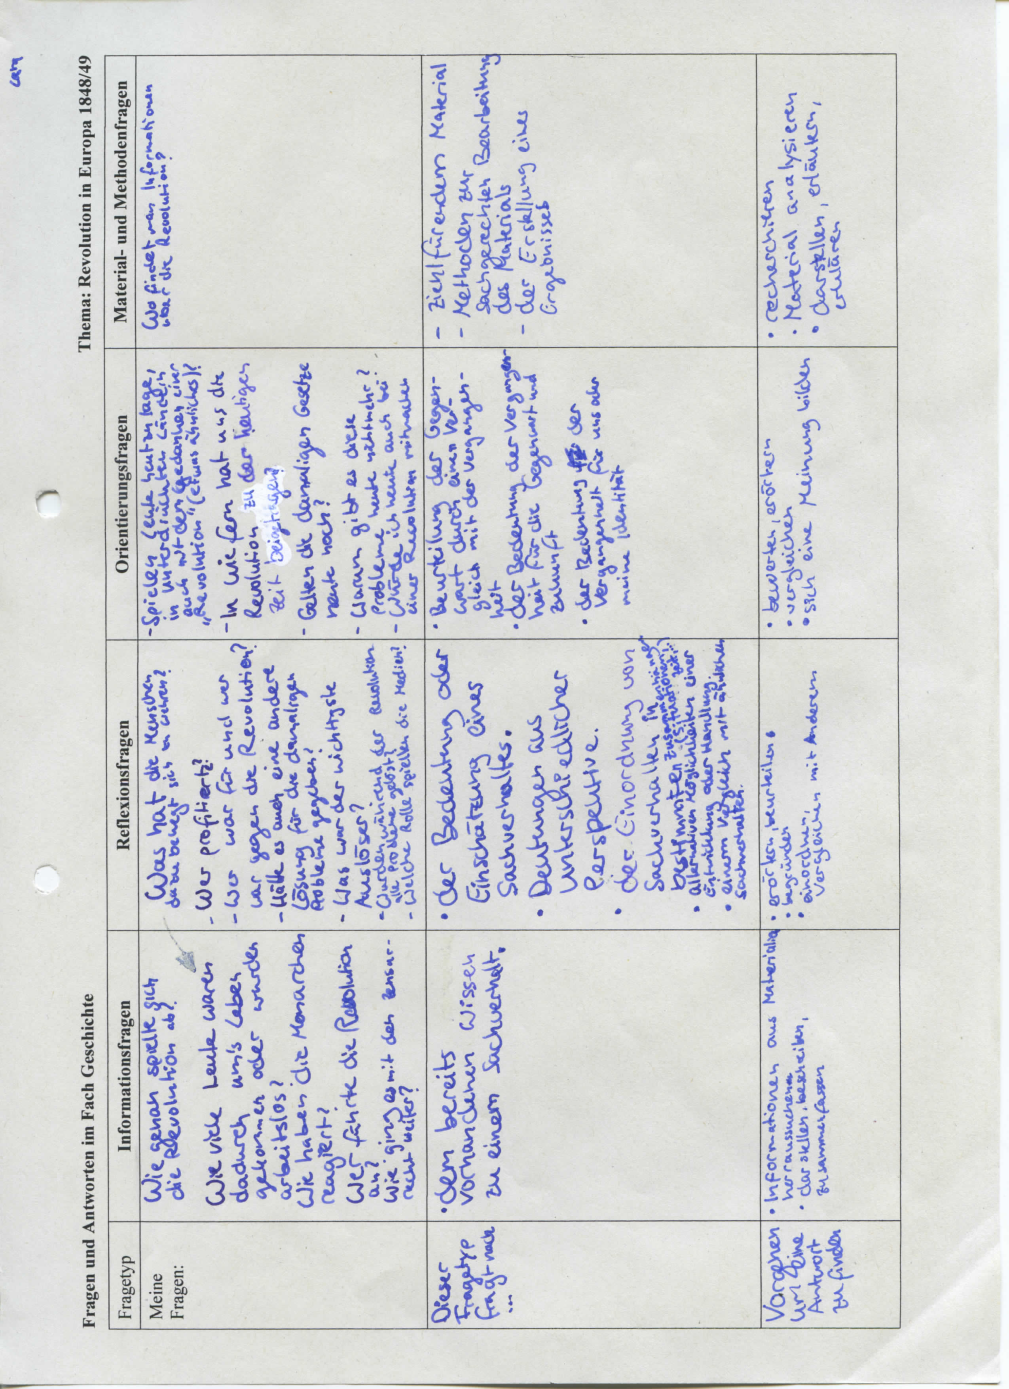 cam
Fragen und Antworten im Fach Geschichte
Thema: Revolution in Europa 1848/49
Fragetyp
Informationsfragen
Reflexionsfragen
Orientierungsfragen
Material- und Methodenfragen
Meine
Fragen:
Wie genau spielte sich
die Revolution ab?
Wie viele Leute waren
dadurch um's Leben
gekommen oder wurden
arbeitslos?
Wie haben die Monarchen
reagiert?
Wer führte die Revolution
an?
Wie ging es mit den Zensur-
recht weiter?
Was hat die Menschen
dazu bewegt sich zu wehren?
- Wer profitierte?
- Wer war für und wer
war gegen die Revolution?
- Hätte es auch eine andere
Lösung für die damaligen
Probleme gegeben?
- Was war der wichtigste
Auslöser?
- Wurden während der Revolution
alle Probleme gelöst?
- Welche Rolle spielen die Medien?
- Spielen Leute heutzutage,
in unterdrückten Ländern
auch mit den Gedanken einer
„Revolution" (etwas ähnliches)?
- In wie fern hat uns die
Revolution zu der heutigen
Zeit beigetragen?
- Gelten die damaligen Gesetze
heute noch?
- Warum gibt es diese
Probleme heute nicht mehr?
- Würde ich heute auch bei
einer Revolution mitmachen
Wo findet man Informationen
über die Revolution?
Dieser
Fragetyp
fragt nach
...
• dem bereits
vorhandenen Wissen
zu einem Sachverhalt.
• der Bedeutung oder
Einschätzung eines
Sachverhaltes.
• Deutungen aus
unterschiedlicher
Perspektive.
• der Einordnung von
Sachverhalten in
bestimmten Zusammenhänge
(Situationen, Zeit..)
alternativen Möglichkeiten einer
Entwicklung oder Handlung.
• einem Vergleich mit ähnlichen
Sachverhalten.
• Beurteilung der Gegen-
wart durch einen Ver-
gleich mit der Vergangen-
heit
• der Bedeutung der Vergangen-
heit für die Gegenwart und
Zukunft
• der Bedeutung der
Vergangenheit für uns oder
meine Identität
- Ziehlfürendem Material
- Methoden zur
sachgerechten Bearbeitung
des Materials
- der Erstellung eines
Ergebnisses
Vorgehen
um eine
Antwort
zu finden
• Informationen aus Material
heraussuchen
• darstellen, beschreiben,
zusammenfassen
• erörtern, beurteilen
• begründen
• einordnen,
vergleichen mit Anderem
• bewerten, erörtern
• vergleichen
• sich eine Meinung bilden
• recherchieren
• Material analysieren
• darstellen, erläutern,
erklären